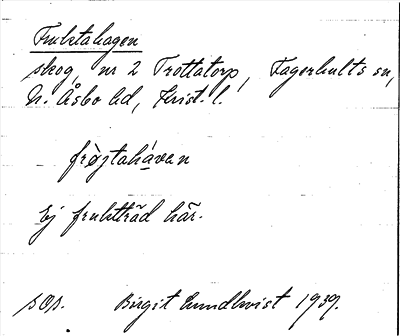 Fruktahagen
skog, nr 2 Trottatorp, Fagerhults sn,
N. Åsbo hd, Krist. l.
fròjtahávan
Ej fruktträd här.
sOp. Birgit Lundkvist 1939.